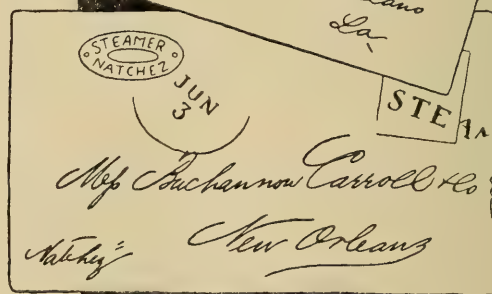 La
STEAMER
NATCHEZ
JUN
3
STEA
Mess Buchannon Carroll & Co
New Orleans
Natchez